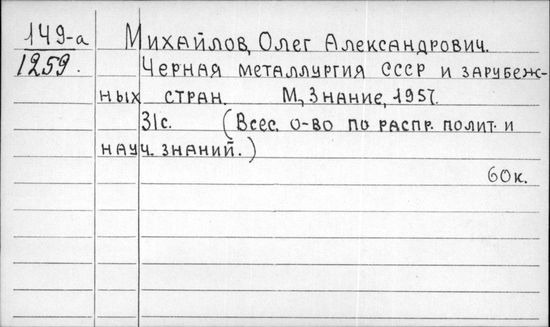 149-а
1259.
Михайлов, Олег Александрович.
Черная металлургия СССР и зарубеж-
ных стран. М., Знание, 1957.
31с. (Всес. о-во по распр. полит. и
науч. знаний.)
60к.